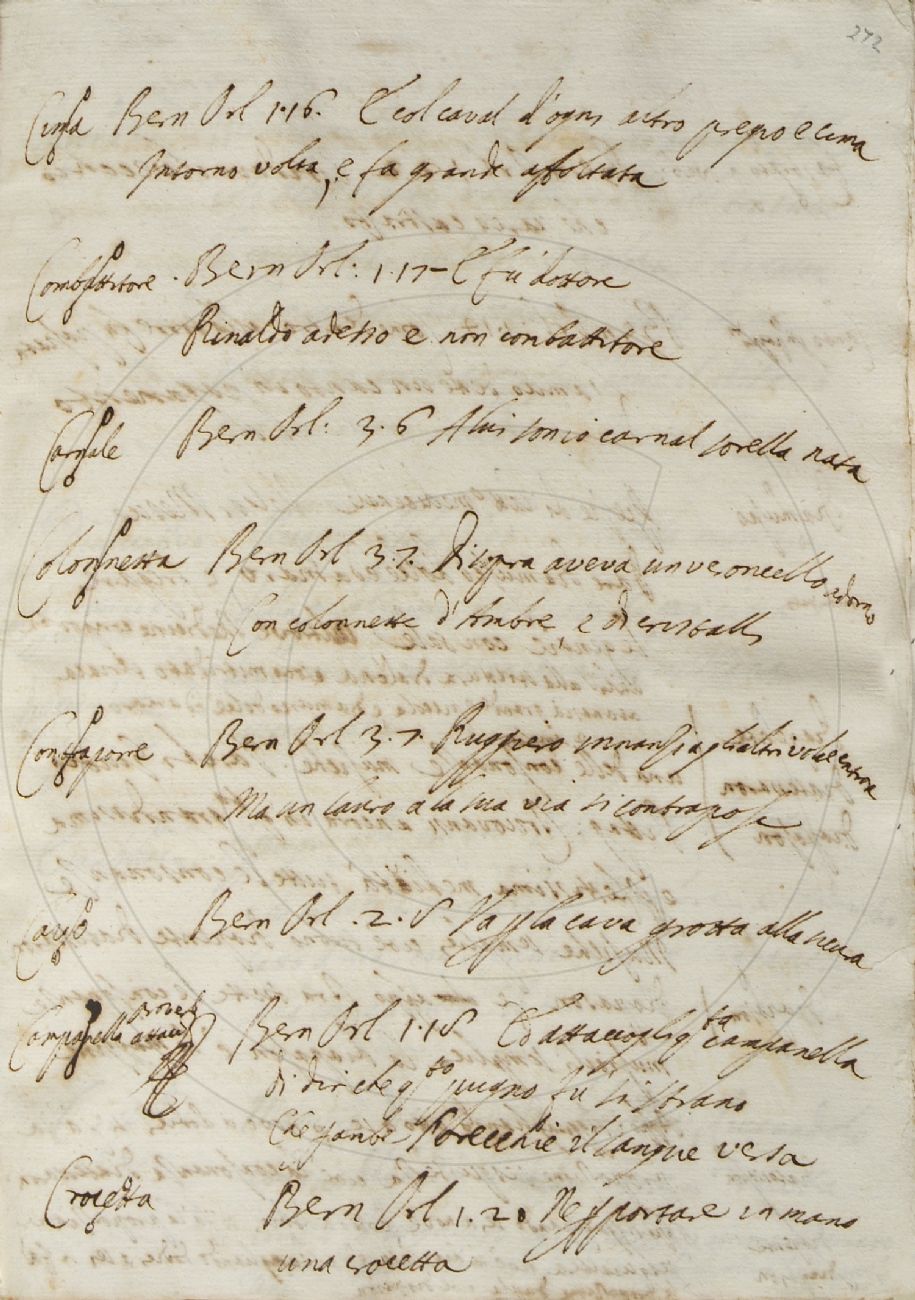 272
Cima Bern Orl 1.16. E col caval d'ogni altro pregio e cima
Intorno volta, e fa grande affoltata
Combattitore. Bern Orl: 1.17 - E fu dottore
Rinaldo adesso e non conbattitore
Carnale Bern Orl: 3.6 A lui son io carnal sorella nata
Colonnetta Bern Orl 3.7. Di sopra aveva un veroncello adorno
Con colonnette d'Ambre, e di cristalli
Contrapporre Bern Orl 3.7. Ruggiero innanzi agli altri volle entrare
Ma un lauro a la sua via si contrapose
Cavo Bern Orl .2.8 cava grotta alla sicura
Campanella attacc Bern Orl 1.18 Ed attaccogli qta campanella
Di dir che qto pugno fu si strano
Che l'orecchie il sangue versa
Crocetta Bern Orl 1.20 Nel portare in mano
una crocetta